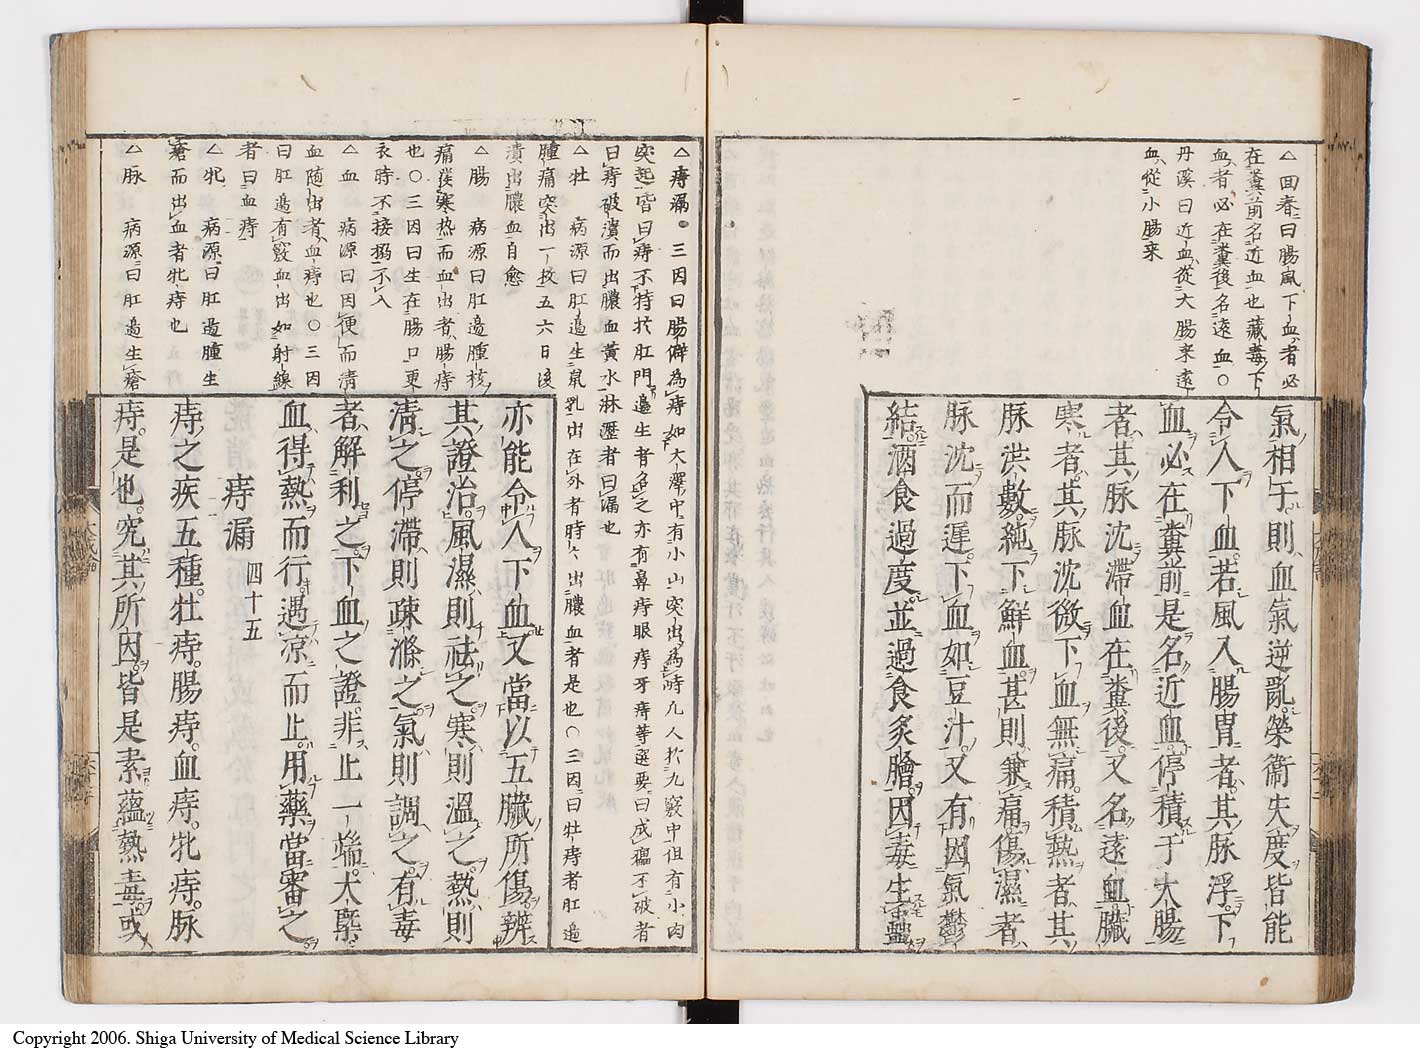 △回春ニ曰腸風下血者必
在糞前名近血也藏毒下
血者必在糞後名遠血○
丹溪曰近血從大腸来遠
血從小腸来
氣相干則血氣逆亂榮衞失度皆能
令人下血若風入腸胃者其脉浮下
血必在糞前是名近血停積于大腸
者其脉沈滞血在糞後又名遠血臓
寒者其脉沈微下血無痛積熱者其
脉洪數純下鮮血甚則兼痛傷濕者
脉沈而遲下血如豆汁又有因氣鬱
結酒食過度並過食炙膾因毒生蟲
△痔漏。三因曰腸僻為痔如大澤中有小山突出為峙凡人於九竅中但有小肉
突起皆曰痔不特於肛門邉生者名之亦有鼻痔眼痔牙痔等選要曰成瘟不破者
曰痔破潰而出膿血黄水淋瀝者曰漏也
△牡 病源曰肛邉生鼠乳出在外者時々出膿血者是也○三因曰牡痔者肛邉
腫痛突出一枚五六日後
潰出膿血自愈
△腸 病源曰肛邉腫核
痛僕寒熱而血出者腸痔
也○三因曰生在腸口更
衣時不接搦不入
△血 病源曰因便而清
血随出者血痔也○三因
曰肛邉有竅血出如射線
者曰血痔
△牝 病源曰肛邉腫生
瘡而出血者牝痔也
△脉 病源曰肛邉生瘡
亦能令人下血又當以五臓所傷辨
其證治風濕則祛之寒則溫之熱則
清之停滞則疎滌之氣則調之有毒
者解利之下血之證非止一端大槩
血得熱而行遇凉而止用藥當審之
痔漏 四十五
痔之疾五種牡痔腸痔血痔牝痔脉
痔是也究其所因皆是素蘊熱毒或
Copyright 2006. Shiga University of Medical Science Library